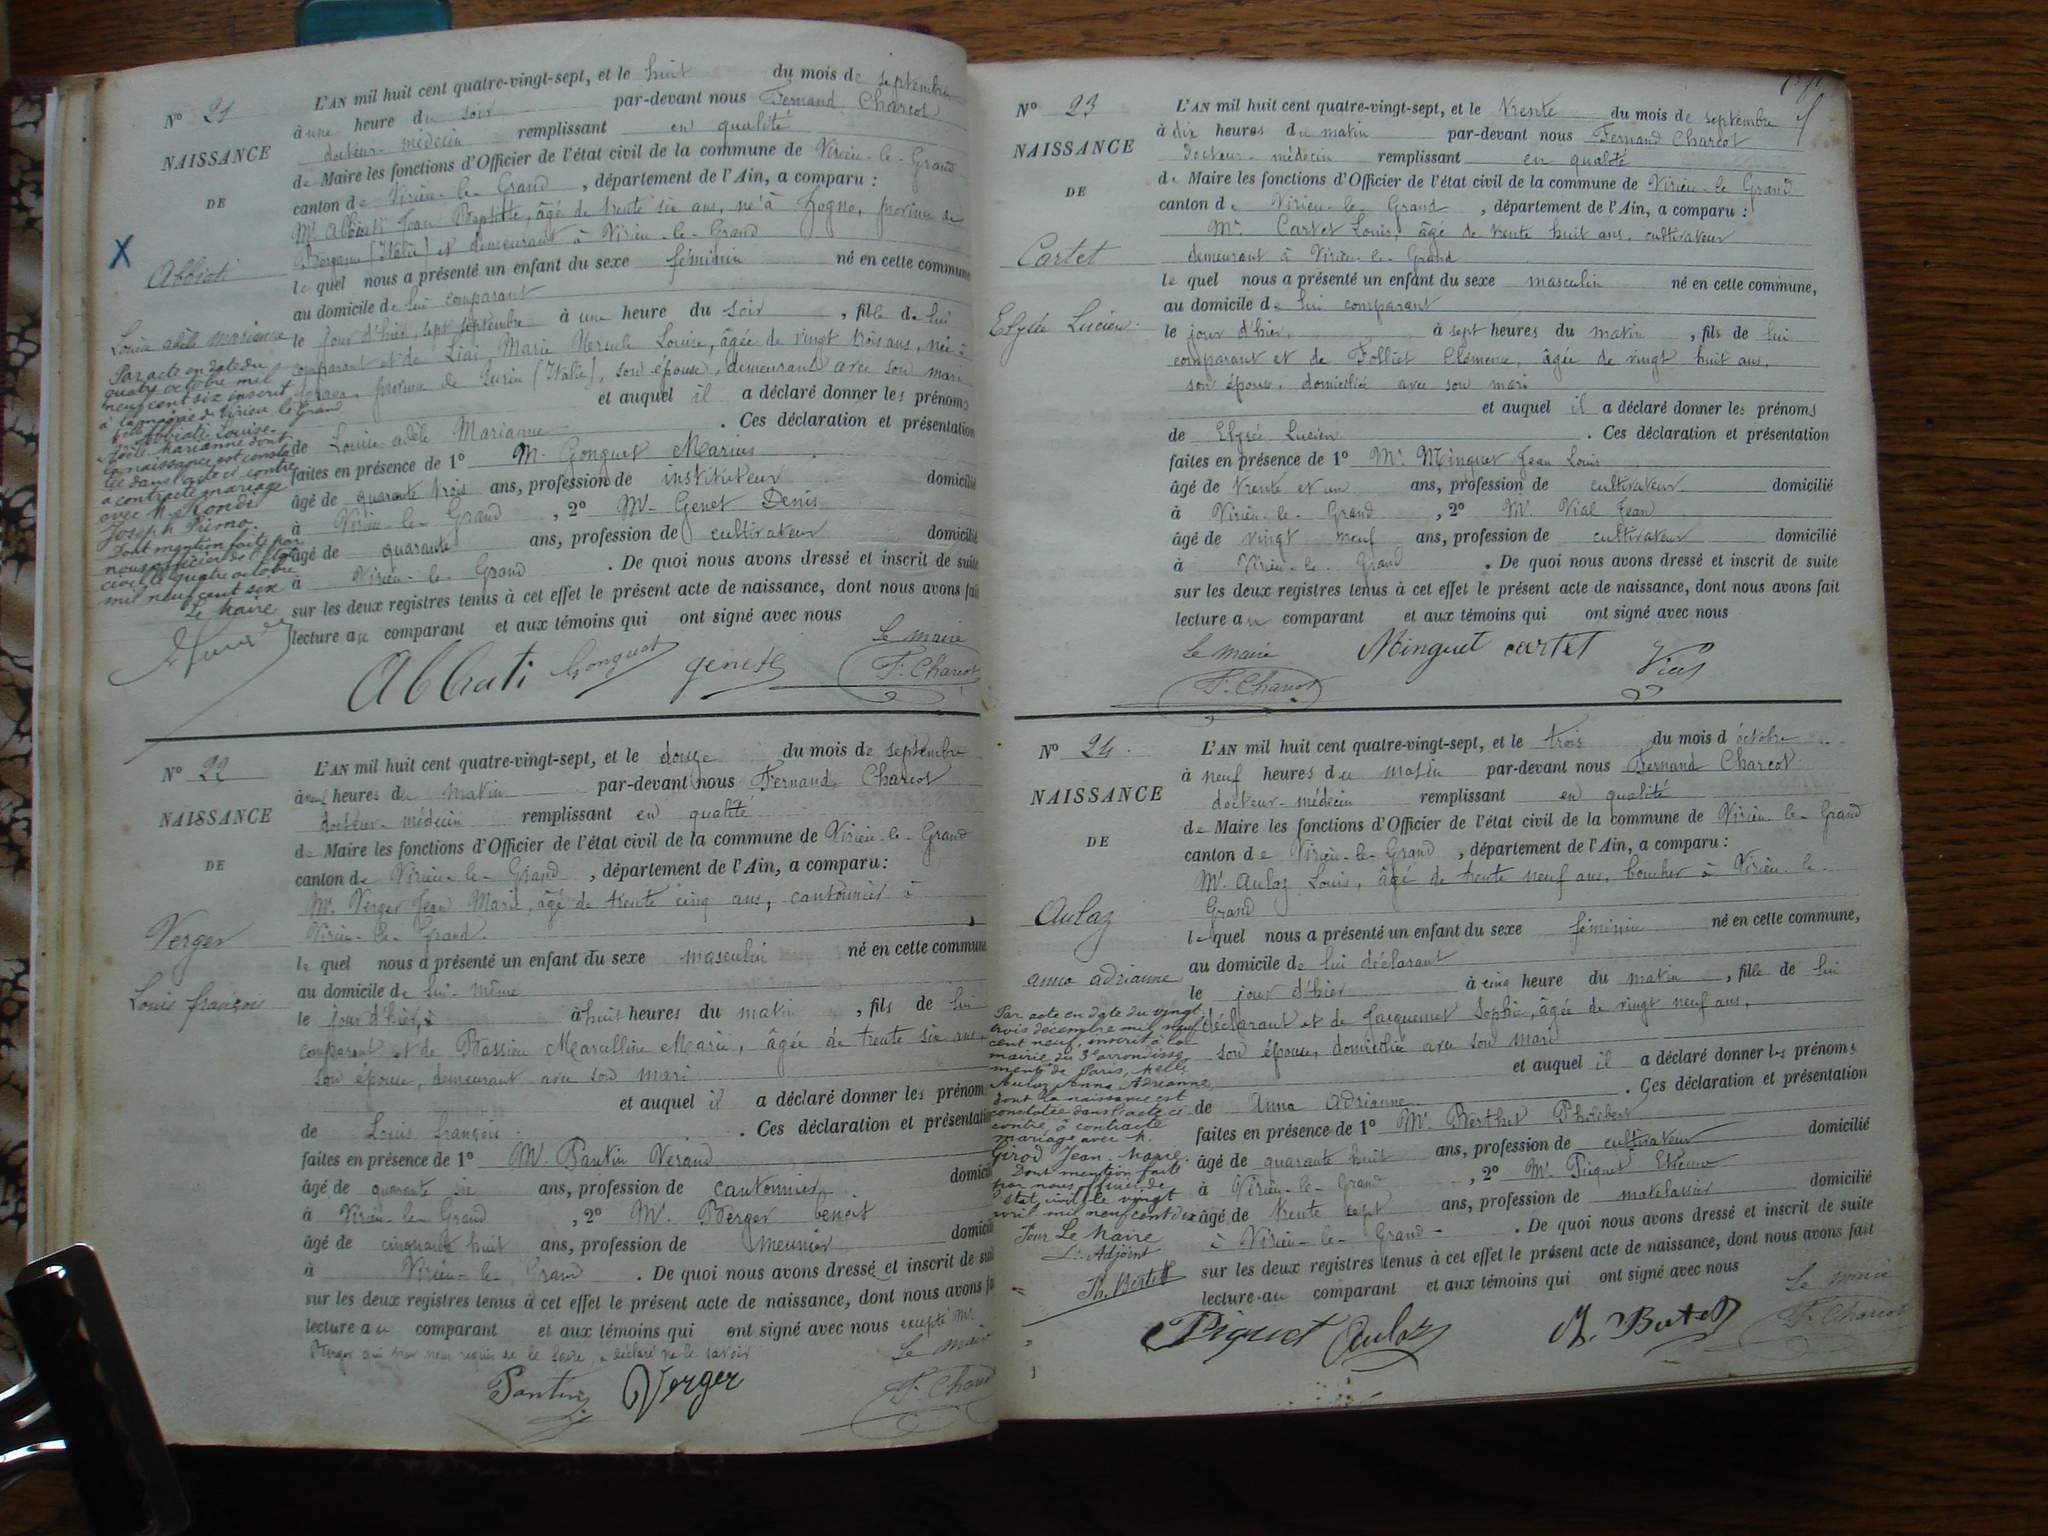 N° 21
NAISSANCE
DE
Abbiati
Louise adèle Marianne
Par acte en date du
quatre octobre mil
neuf cent six inscrit
à la mairie de Virieu le Grand
Abbiati Louise
Adèle Marianne dont
la naissance est consta
tée dans l'acte ci contre
a contracté mariage
avec M. Rondi
Joseph Primo.
Dont mention faite par
nous officier de l'état
civil le quatre octobre
mil neuf cent six
Le Maire
L'AN mil huit cent quatre-vingt-sept, et le huit du mois de septembre
à une heure du soir par-devant nous Fernand Charcot
docteur-médecin remplissant en qualité
de Maire les fonctions d'Officier de l'état civil de la commune de Virieu-le-Grand
canton de Virieu-le-Grand, département de l'Ain, a comparu :
Mr Abbiati Jean Baptiste, âgé de trente six ans, né à Zogno, province de
Bergame (Italie) et demeurant à Virieu-le-Grand
le quel nous a présenté un enfant du sexe féminin né en cette commune
au domicile de lui comparant
le jour d'hier, sept septembre à une heure du soir, fille de lui
comparant et de Liai Marie Ursule Louise, âgée de vingt trois ans, née à
province de Turin (Italie), son épouse, demeurant avec son mari
et auquel il a déclaré donner les prénoms
de Louise adèle Marianne. Ces déclaration et présentation
faites en présence de 1° M. Gonguet Marius
âgé de quarante trois ans, profession de instituteur domicilié
à Virieu-le-Grand, 2° Mr Genet Denis
âgé de quarante ans, profession de cultivateur domicilié
à Virieu-le-Grand. De quoi nous avons dressé et inscrit de suite
sur les deux registres tenus à cet effet le présent acte de naissance, dont nous avons fait
lecture au comparant et aux témoins qui ont signé avec nous
Le maire
Abbiati Gonguet genet F. Charcot
N° 22
NAISSANCE
DE
Verger
Louis françois
L'AN mil huit cent quatre-vingt-sept, et le douze du mois de septembre
à heures du matin par-devant nous Fernand Charcot
docteur-médecin remplissant en qualité
de Maire les fonctions d'Officier de l'état civil de la commune de Virieu-le-Grand
canton de Virieu-le-Grand, département de l'Ain, a comparu :
Mr Verger Jean Marie, âgé de trente cinq ans, cantonnier à
Virieu-le-Grand.
le quel nous a présenté un enfant du sexe masculin né en cette commune
au domicile de lui-même
le jour d'hier, à huit heures du matin, fils de lui
comparant et de Bassieu Marcelline Marie, âgée de trente six ans,
son épouse, demeurant avec son mari
et auquel il a déclaré donner les prénoms
de Louis françois. Ces déclaration et présentation
faites en présence de 1° Mr Pantin Verand
âgé de quarante six ans, profession de cantonnier domicilié
à Virieu-le-Grand, 2° Mr. Berger benoit
âgé de cinquante huit ans, profession de meunier domicilié
à Virieu-le-Grand. De quoi nous avons dressé et inscrit de suite
sur les deux registres tenus à cet effet le présent acte de naissance, dont nous avons fait
lecture au comparant et aux témoins qui ont signé avec nous excepté Mr
Berger qui par nous requis de le faire, a déclaré ne le savoir Le maire
Pantin Verger F. Charcot
N° 23
NAISSANCE
DE
Cartet
Elysée Lucien.
L'AN mil huit cent quatre-vingt-sept, et le trente du mois de septembre
à dix heures du matin par-devant nous Fernand Charcot
docteur-médecin remplissant en qualité
de Maire les fonctions d'Officier de l'état civil de la commune de Virieu-le Grand
canton de Virieu-le-Grand, département de l'Ain, a comparu :
Mr. Cartet Louis, âgé de trente huit ans, cultivateur
demeurant à Virieu-le-Grand
le quel nous a présenté un enfant du sexe masculin né en cette commune,
au domicile de lui comparant
le jour d'hier, à sept heures du matin, fils de lui
comparant et de Folliet Clémence, âgée de vingt huit ans,
son épouse, domiciliée avec son mari
et auquel il a déclaré donner les prénoms
de Elysée Lucien. Ces déclaration et présentation
faites en présence de 1° Mr. Minguet Jean Louis
âgé de trente et un ans, profession de cultivateur domicilié
à Virieu-le-Grand, 2° Mr. Vial Jean
âgé de vingt neuf ans, profession de cultivateur domicilié
à Virieu-le-Grand. De quoi nous avons dressé et inscrit de suite
sur les deux registres tenus à cet effet le présent acte de naissance, dont nous avons fait
lecture au comparant et aux témoins qui ont signé avec nous
Le maire Minguet cartet Vial
F. Charcot
N° 24.
NAISSANCE
DE
Aulaz
anna adrianne
Par acte en date du vingt
trois décembre mil neuf
cent neuf, inscrit à la
mairie du 3e arrondisse
ment de Paris, Melle
Aulaz Anna Adrianne
dont la naissance est
constatée dans l'acte ci
contre, a contracté
mariage avec M.
Girod Jean Marie.
Dont mention faite
par nous officier de
l'état civil le vingt
avril mil neuf cent dix
Pour Le Maire
L'Adjoint
Ph. Bertet
L'AN mil huit cent quatre-vingt-sept, et le trois du mois d'octobre
à neuf heures du matin par-devant nous Fernand Charcot
docteur-médecin remplissant en qualité
de Maire les fonctions d'Officier de l'état civil de la commune de Virieu-le-Grand
canton de Virieu-le-Grand, département de l'Ain, a comparu :
Mr. Aulaz Louis, âgé de trente neuf ans, boucher à Virieu-le-
Grand
le quel nous a présenté un enfant du sexe féminin né en cette commune,
au domicile de lui déclarant
le jour d'hier à cinq heure du matin, fille de lui
déclarant et de Jacquemet Sophie, âgée de vingt neuf ans,
son épouse, domiciliée avec son mari
et auquel il a déclaré donner les prénoms
de Anna Adrianne. Ces déclaration et présentation
faites en présence de 1° Mr. Berthet Philibert
âgé de quarante huit ans, profession de cultivateur domicilié
à Virieu-le-Grand, 2° Mr. Piquet Etienne
âgé de trente sept ans, profession de matelassier domicilié
à Virieu-le-Grand. De quoi nous avons dressé et inscrit de suite
sur les deux registres tenus à cet effet le présent acte de naissance, dont nous avons fait
lecture au comparant et aux témoins qui ont signé avec nous
Le maire
Piquet Aulaz F. Charcot